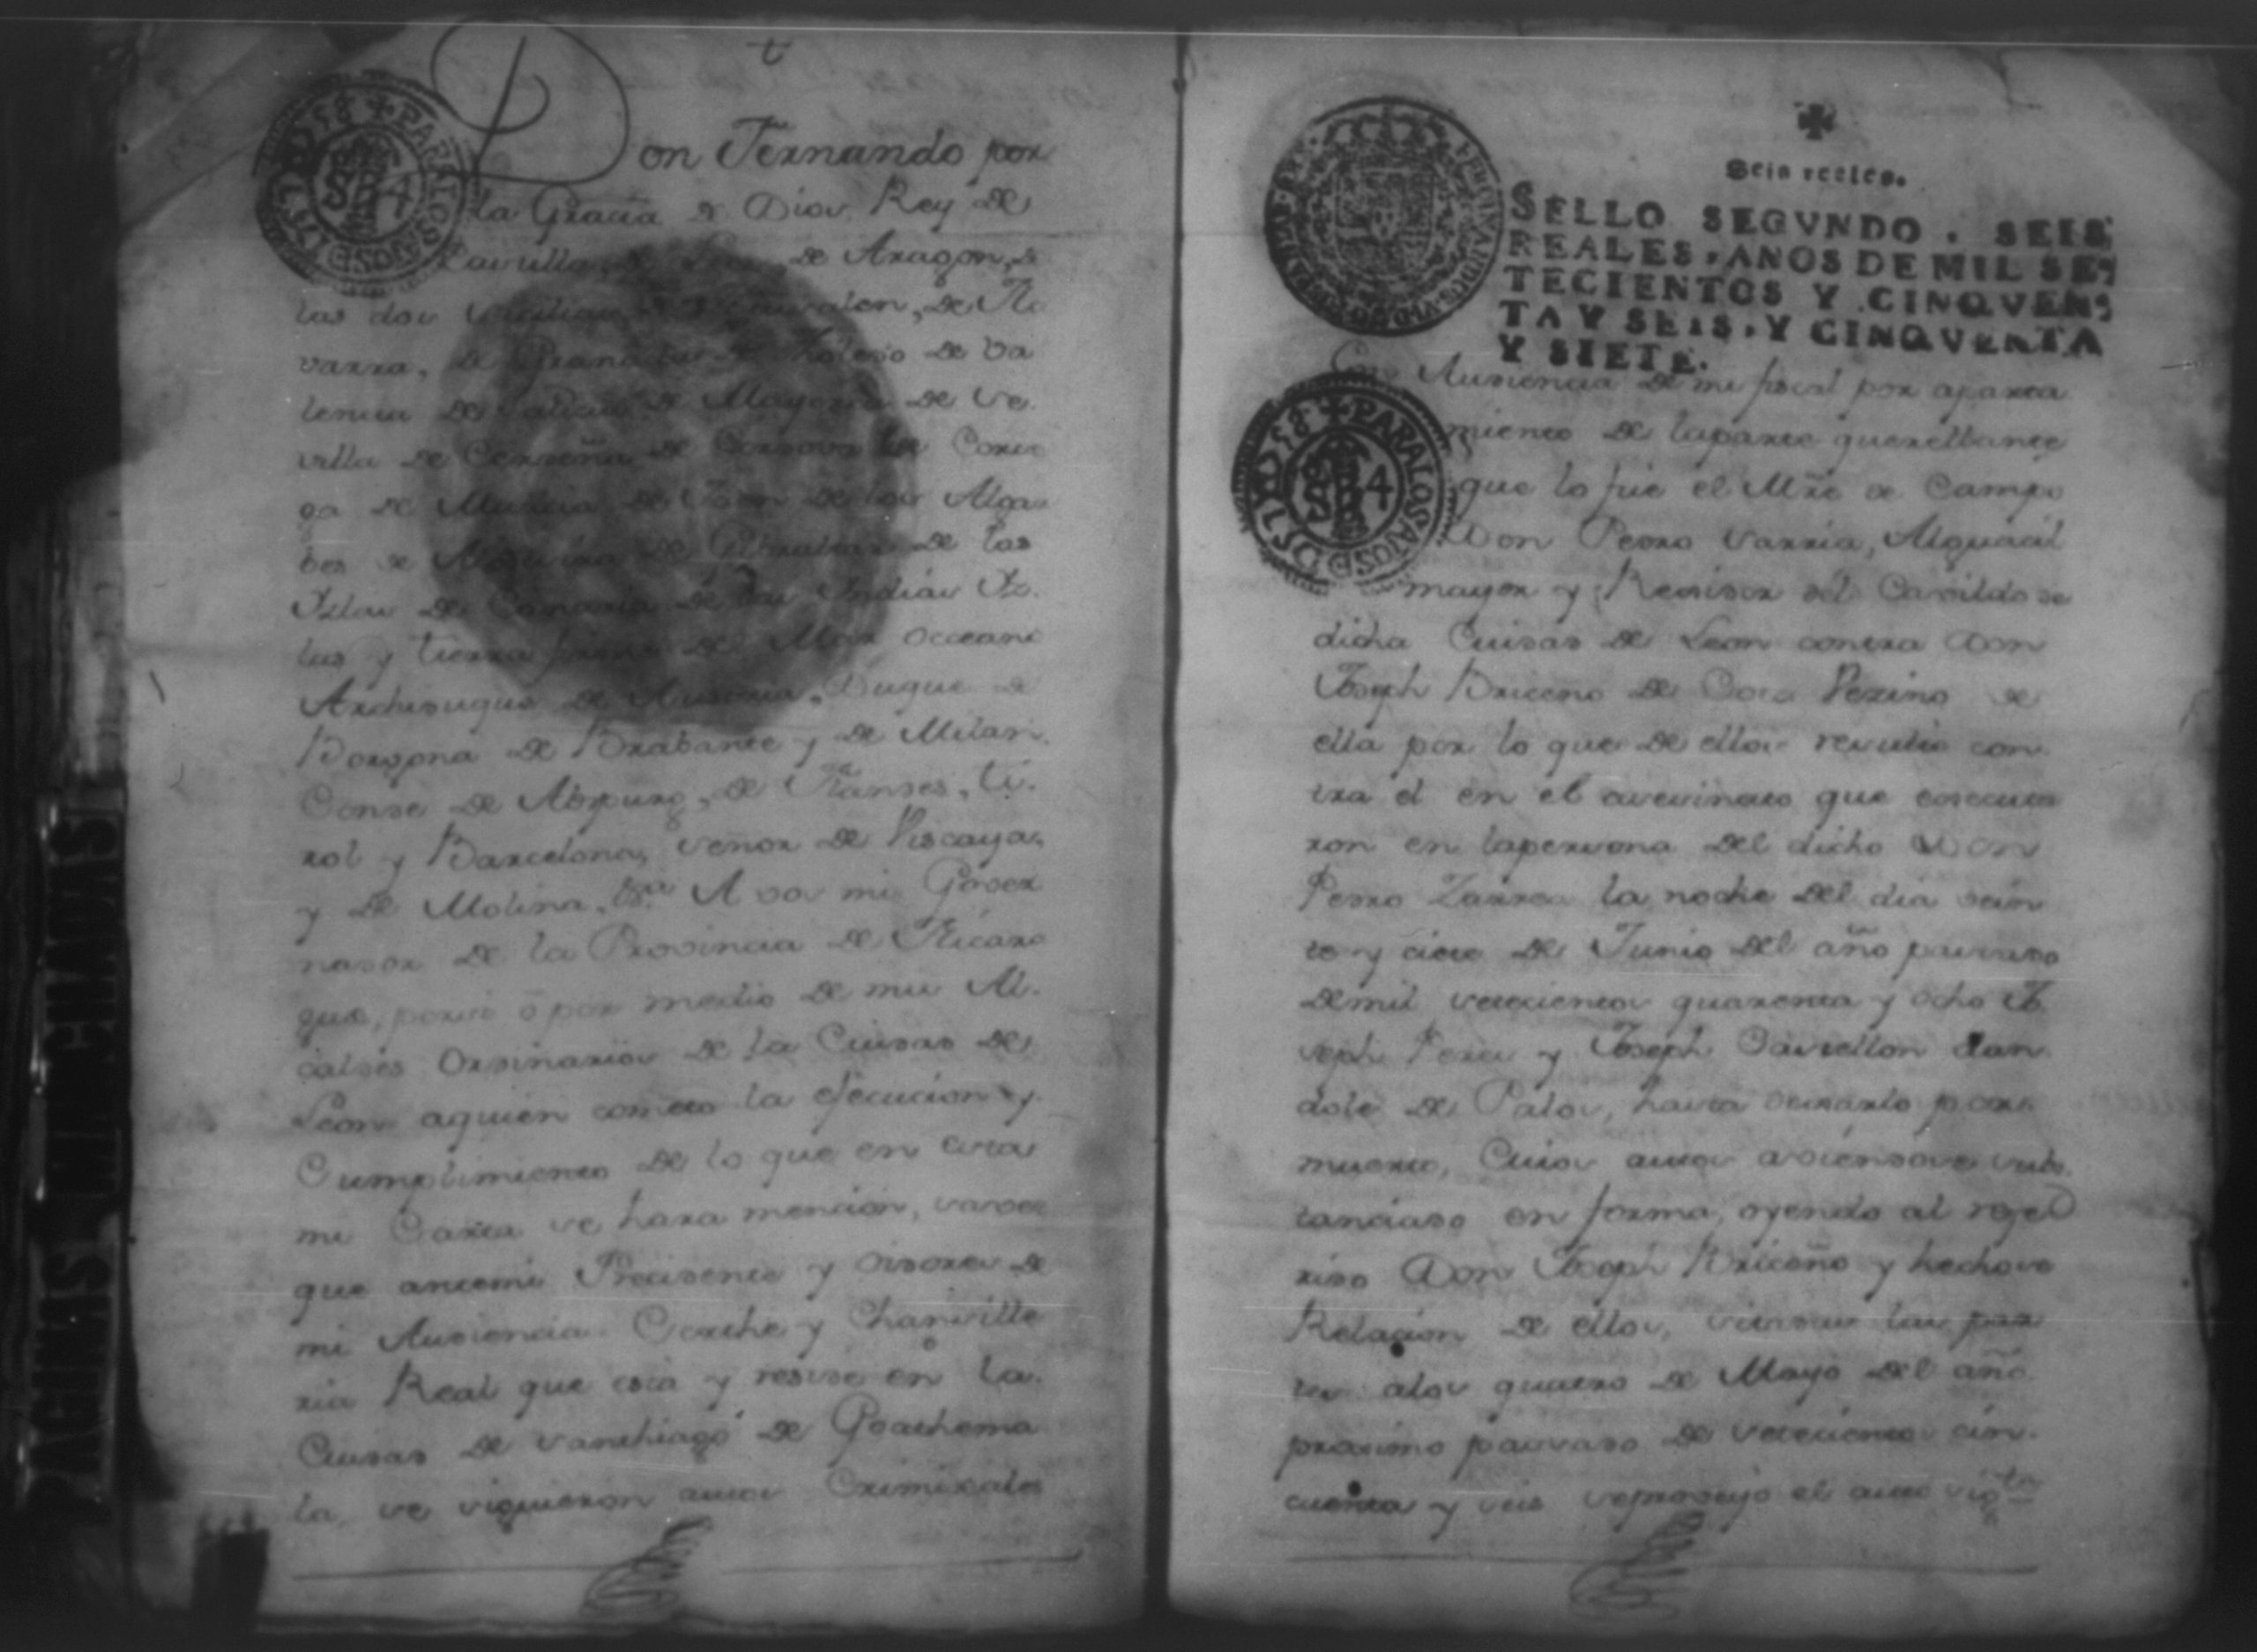 Don Fernando por
la Gracia de Dios Rey de
Castilla, de Leon, de Aragon, de
las dos Sicilias de Jerusalen, de Na
varra, de Granada de Tholedo de Va
lencia de Galicia de Mayorca de Se
villa de Cerdeña de Cordova de Corce
ga de Murcia de Jaen de los Algar
bes de Algecira de Gibraltar de las
Yslas de Canaria de las Indias Ys.
las y tierra firme del Mar occeano
Archiduque de Austria, Duque de
Borgona de Brabante y de Milan.
Conde de Abspurg, de Flandes, ti.
rol y Barcelona, señor de Viscaya,
y de Molina, &.a A vos mi Gover
nador de la Provincia de Nicara
gua, por si ō por medio de mis Al.
caldes Ordinarios de la Ciudad de
Leon aquien cometo la ejecucion y
Cumplimiento de lo que en esta
mi Carta se hara mencion, saved
que antemi Presidente y oidores de
mi Audiencia Corthe y Chansille
ria Real que esta y reside en la
Ciudad de santhiago de Goathema
la, se siguieron autos Criminales
PARA LOS AÑOS DE
S 4
✠
Seis reales.
SELLO SEGVNDO, SEIS
REALES, AÑOS DE MIL SE
TECIENTOS Y CINQVEN
TA Y SEIS, Y CINQVENTA
Y SIETE.
PARA LOS AÑOS DE
S 4
Con Audiencia de mi fiscal por aparta
miento de laparte querellante
que lo fue el Mrē de Campo
Don Pedro Sarria, Alguacil
mayor y Rexidor del Cavildo de
dicha Ciudad de Leon contra Don
Joseph Briceño de Coca Vezino de
ella por lo que de ellos resulto con
tra el en el acesinato que executa
ron en lapersona del dicho Don
Pedro Zarrea la noche del dia vein
te y ciete de Junio del año passado
demil setecientos quarenta y ocho Jo
seph Perez y Joseph Castellon dan
dole de Palos, hasta dexarlo por
muerto, Cuios autos aviendose subs
tanciado en forma, oyendo al refe
rido Don Joseph Briceño y hechose
Relacion de ellos, citadas las par
tes alos quatro de Mayo del año
proximo passado de setecientos cin.
cuenta y seis seproveyo el auto sig.te